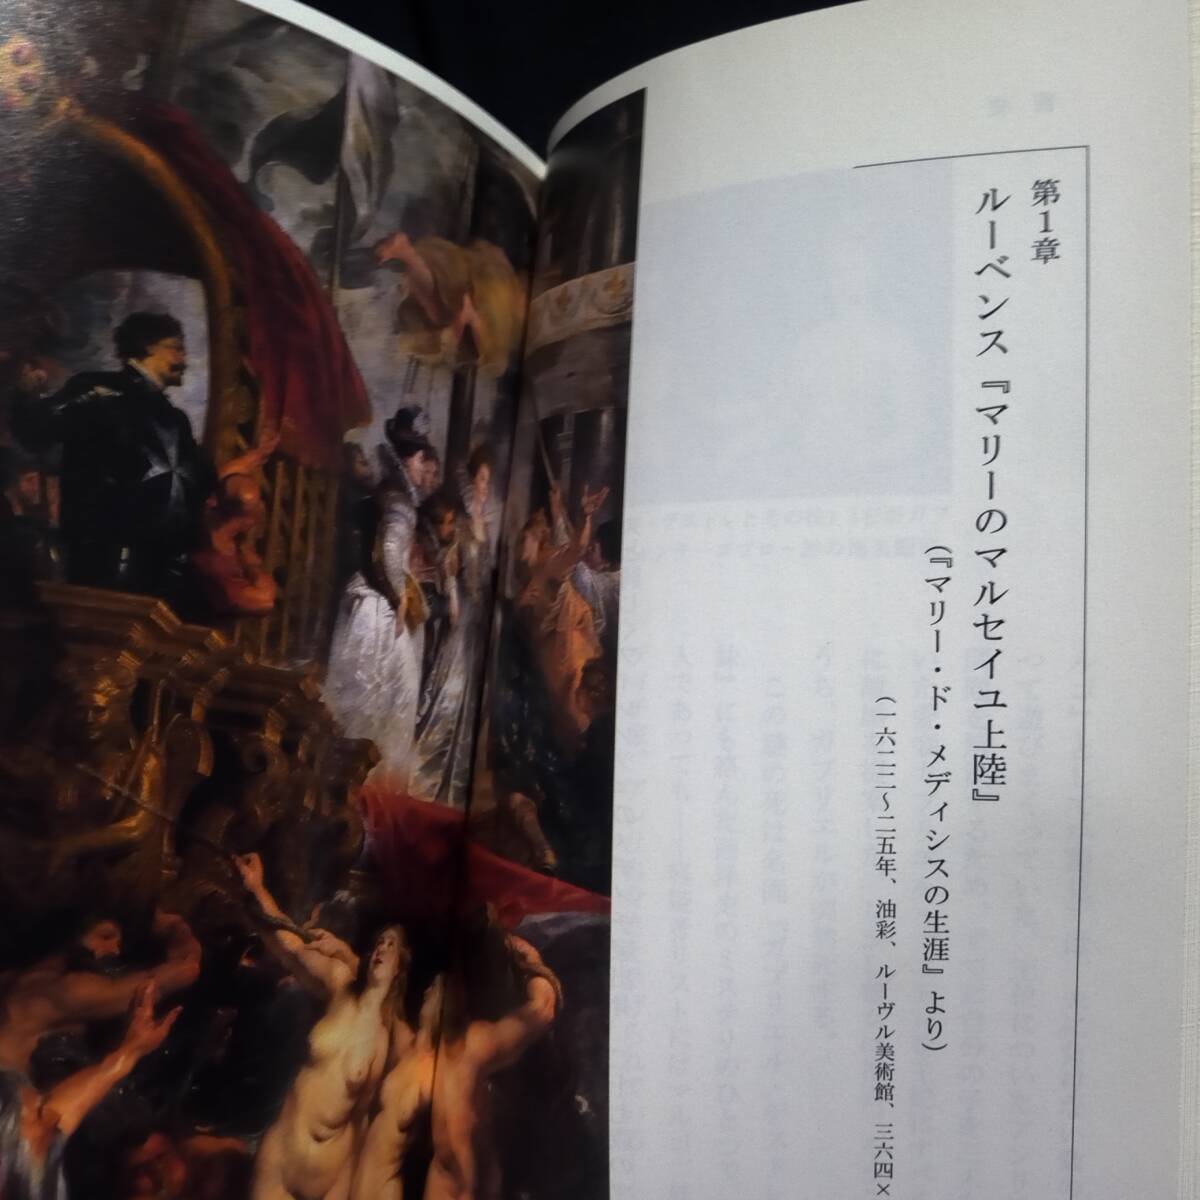 第1章
ルーベンス『マリーのマルセイユ上陸』
（『マリー・ド・メディシスの生涯』より）
（一六二二〜二五年、油彩、ルーヴル美術館、三六四×